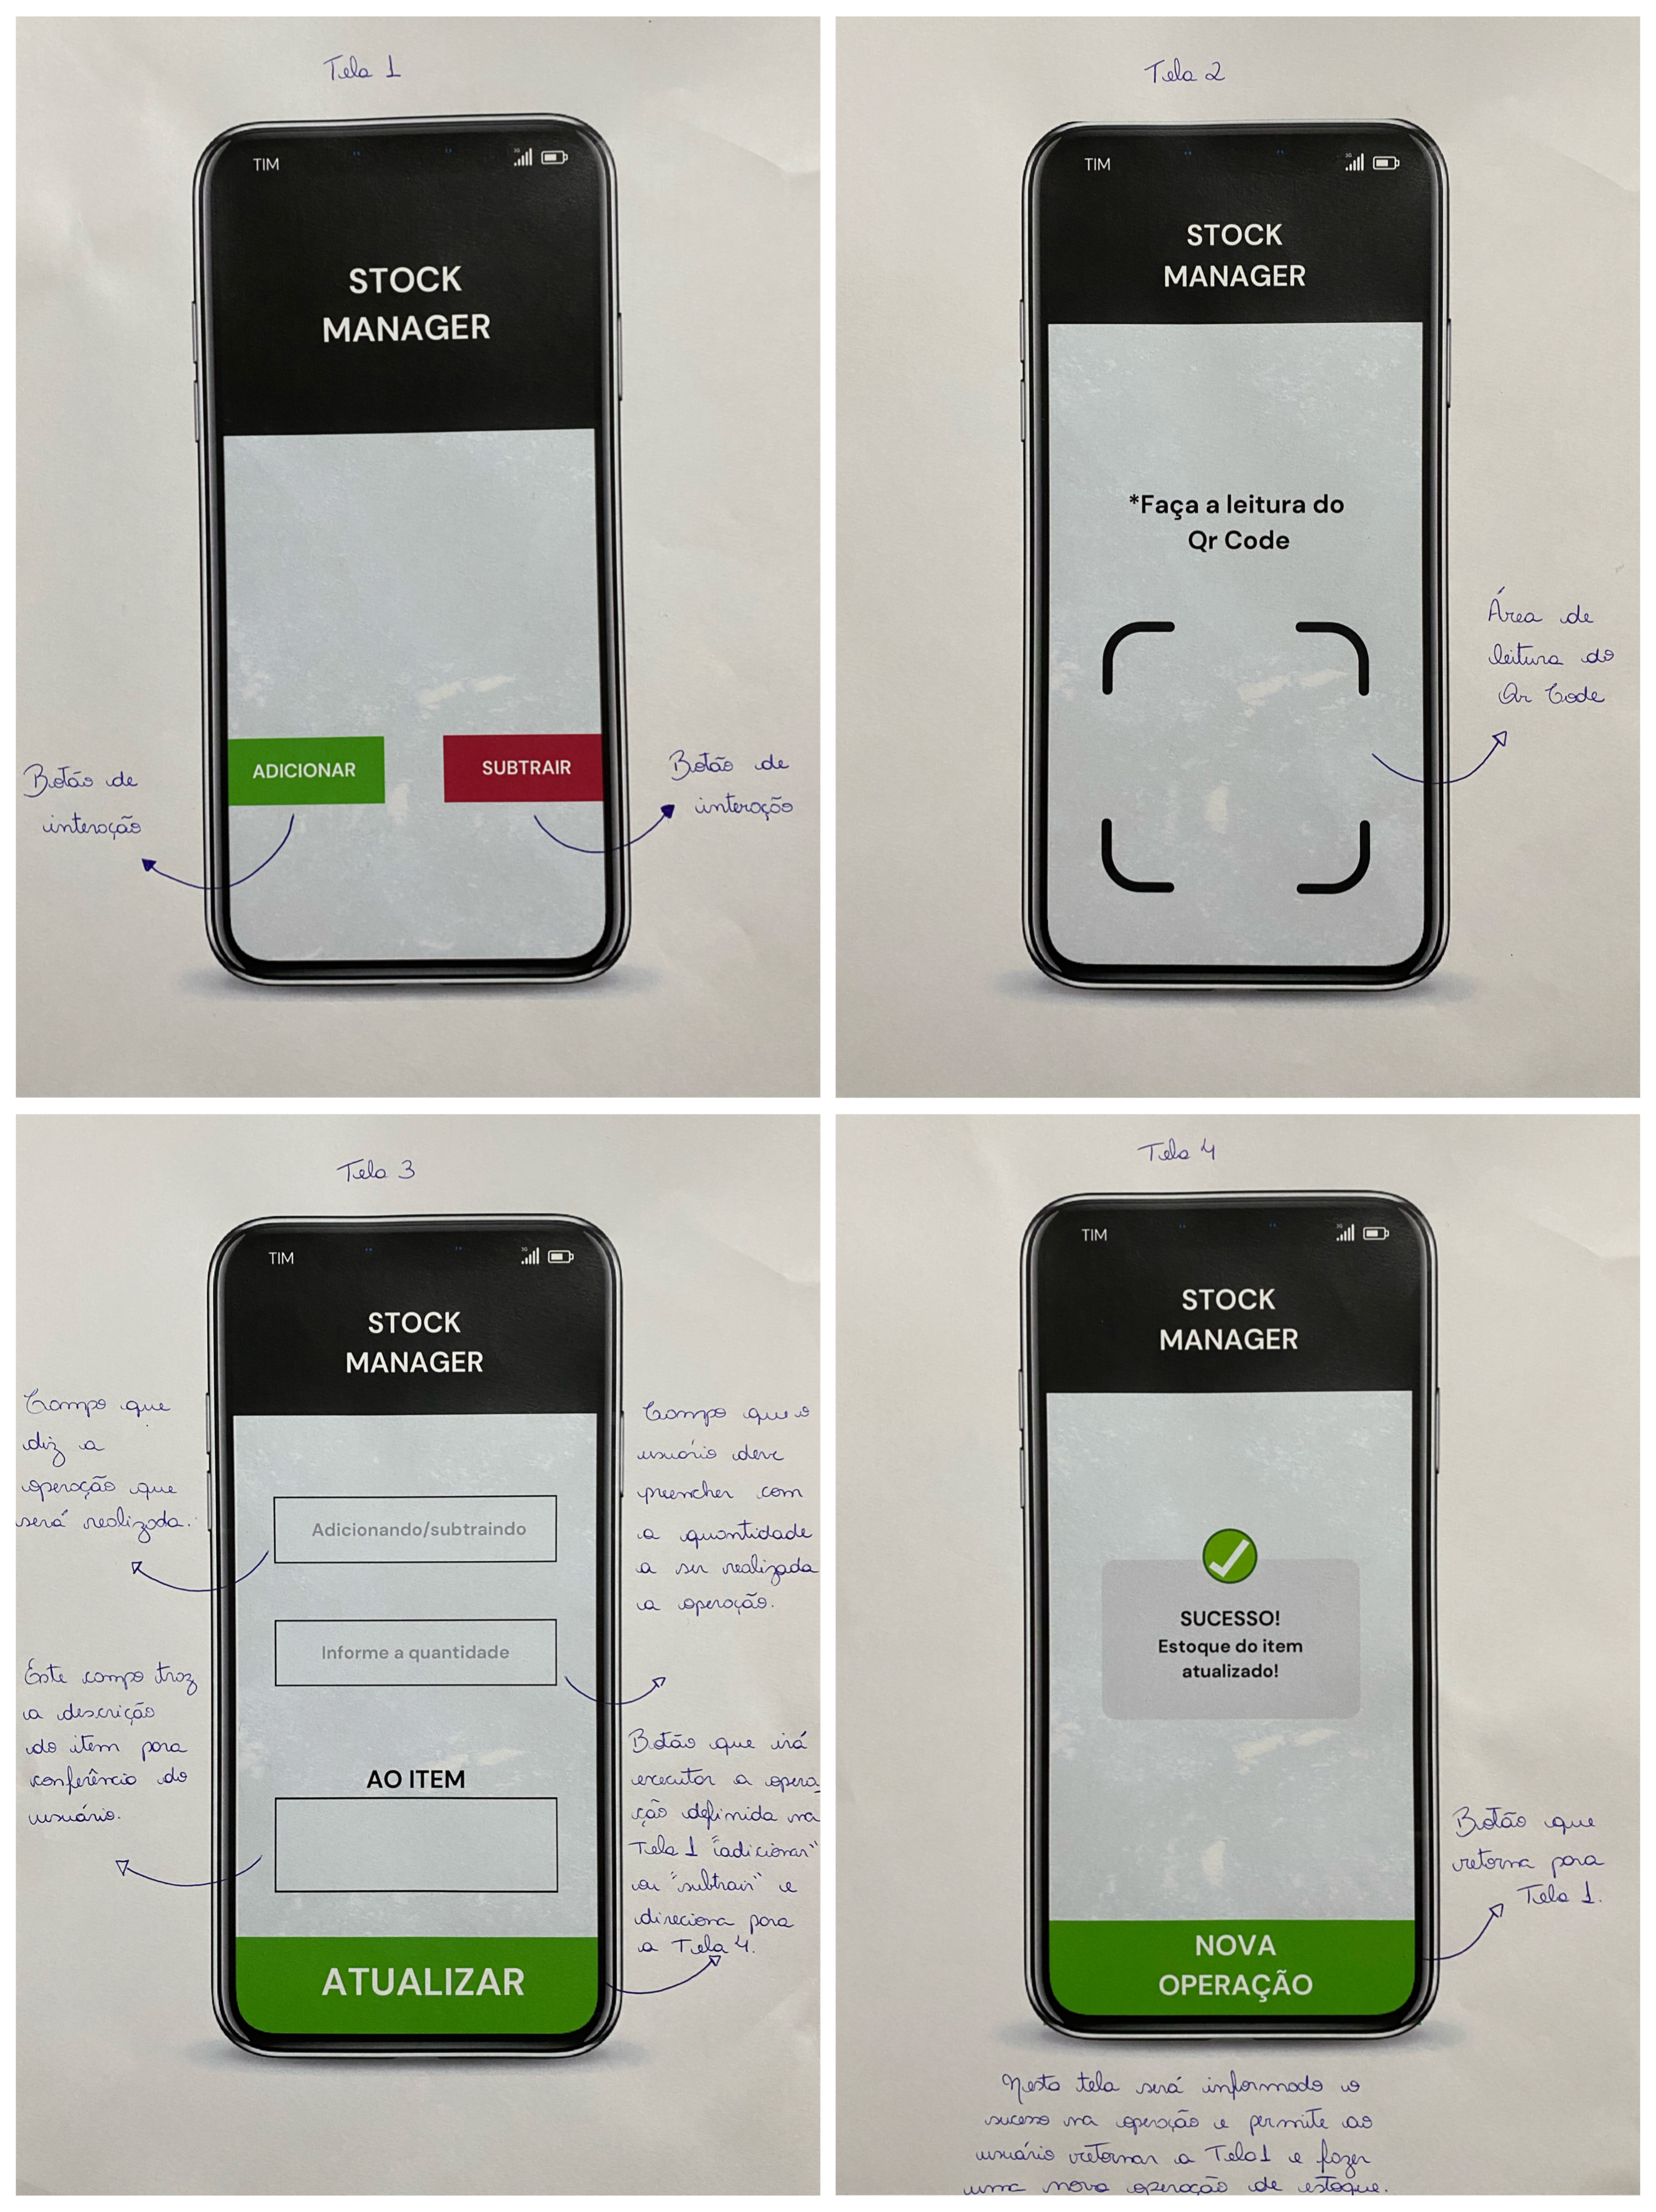 Tela 1
TIM
3G
STOCK
MANAGER
ADICIONAR
SUBTRAIR
Botão de
interação
Botão de
interação
Tela 2
TIM
3G
STOCK
MANAGER
*Faça a leitura do
Qr Code
Área de
leitura do
Qr Code
Tela 3
TIM
3G
STOCK
MANAGER
Campo que
diz a
operação que
será realizada.
Adicionando/subtraindo
Campo que o
usuário deve
preencher com
a quantidade
a ser realizada
a operação.
Informe a quantidade
Este campo traz
a descrição
do item para
conferência do
usuário.
AO ITEM
Botão que irá
executar a opera
ção definida na
Tela 1 "adicionar"
ou "subtrair" e
direciona para
a Tela 4.
ATUALIZAR
Tela 4
TIM
3G
STOCK
MANAGER
SUCESSO!
Estoque do item
atualizado!
Botão que
retorna para
Tela 1.
NOVA
OPERAÇÃO
Nesta tela será informado o
sucesso na operação e permite ao
usuário retornar a Tela 1 e fazer
uma nova operação de estoque.